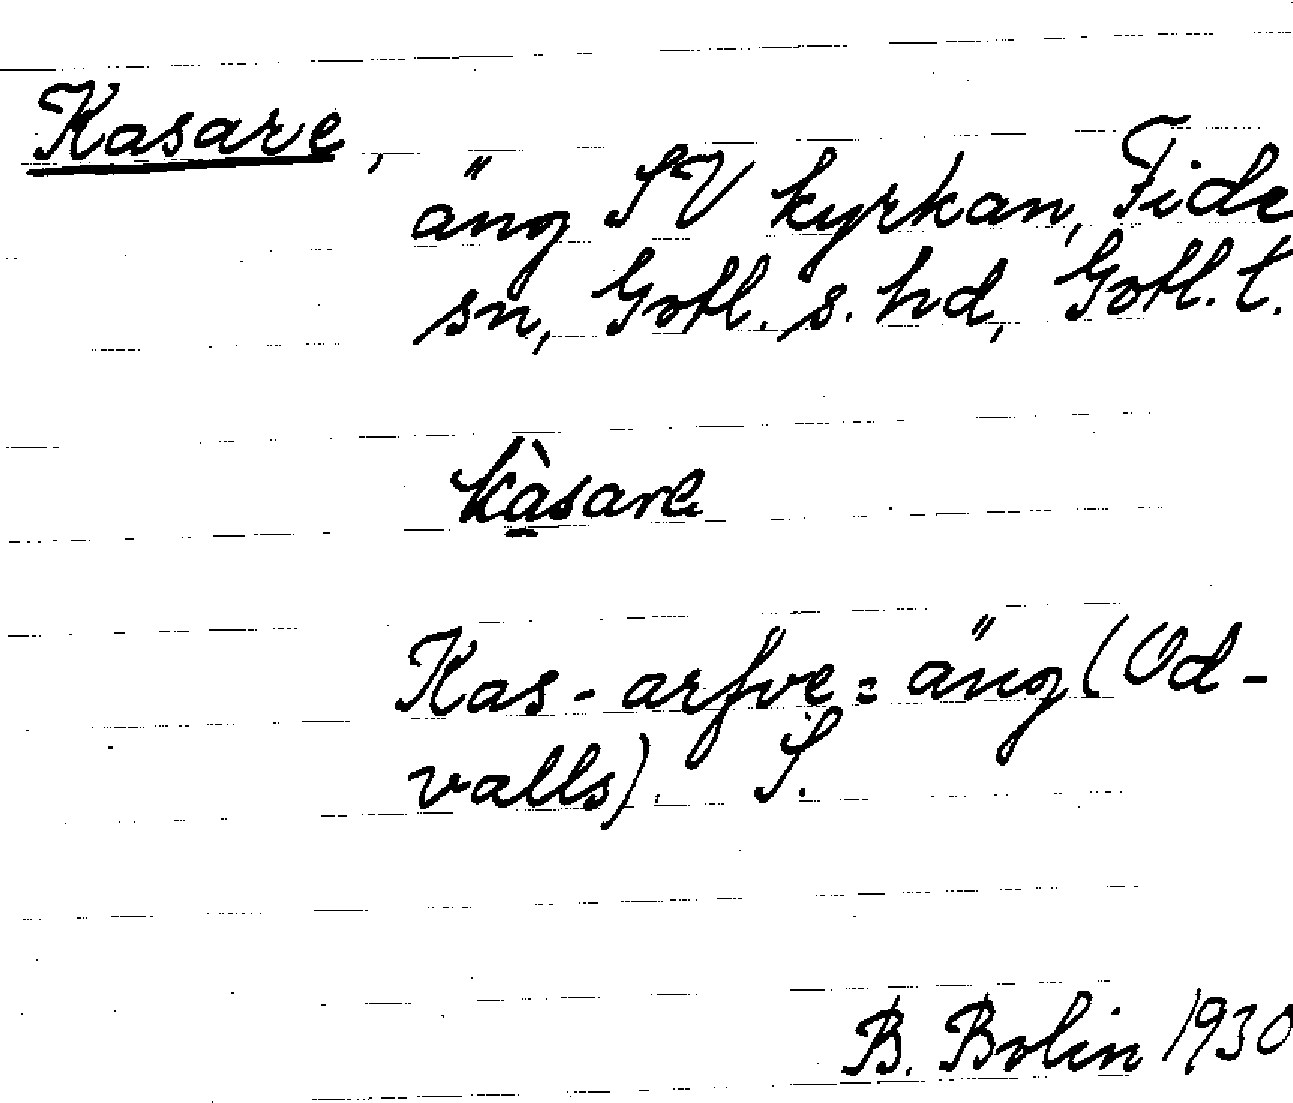 Kasare,
äng SV kyrkan, Fide
sn, Gotl. s. hd, Gotl. l.
kàsare
Kas-arfve=äng (Od-
valls). S.
B. Bolin 1930